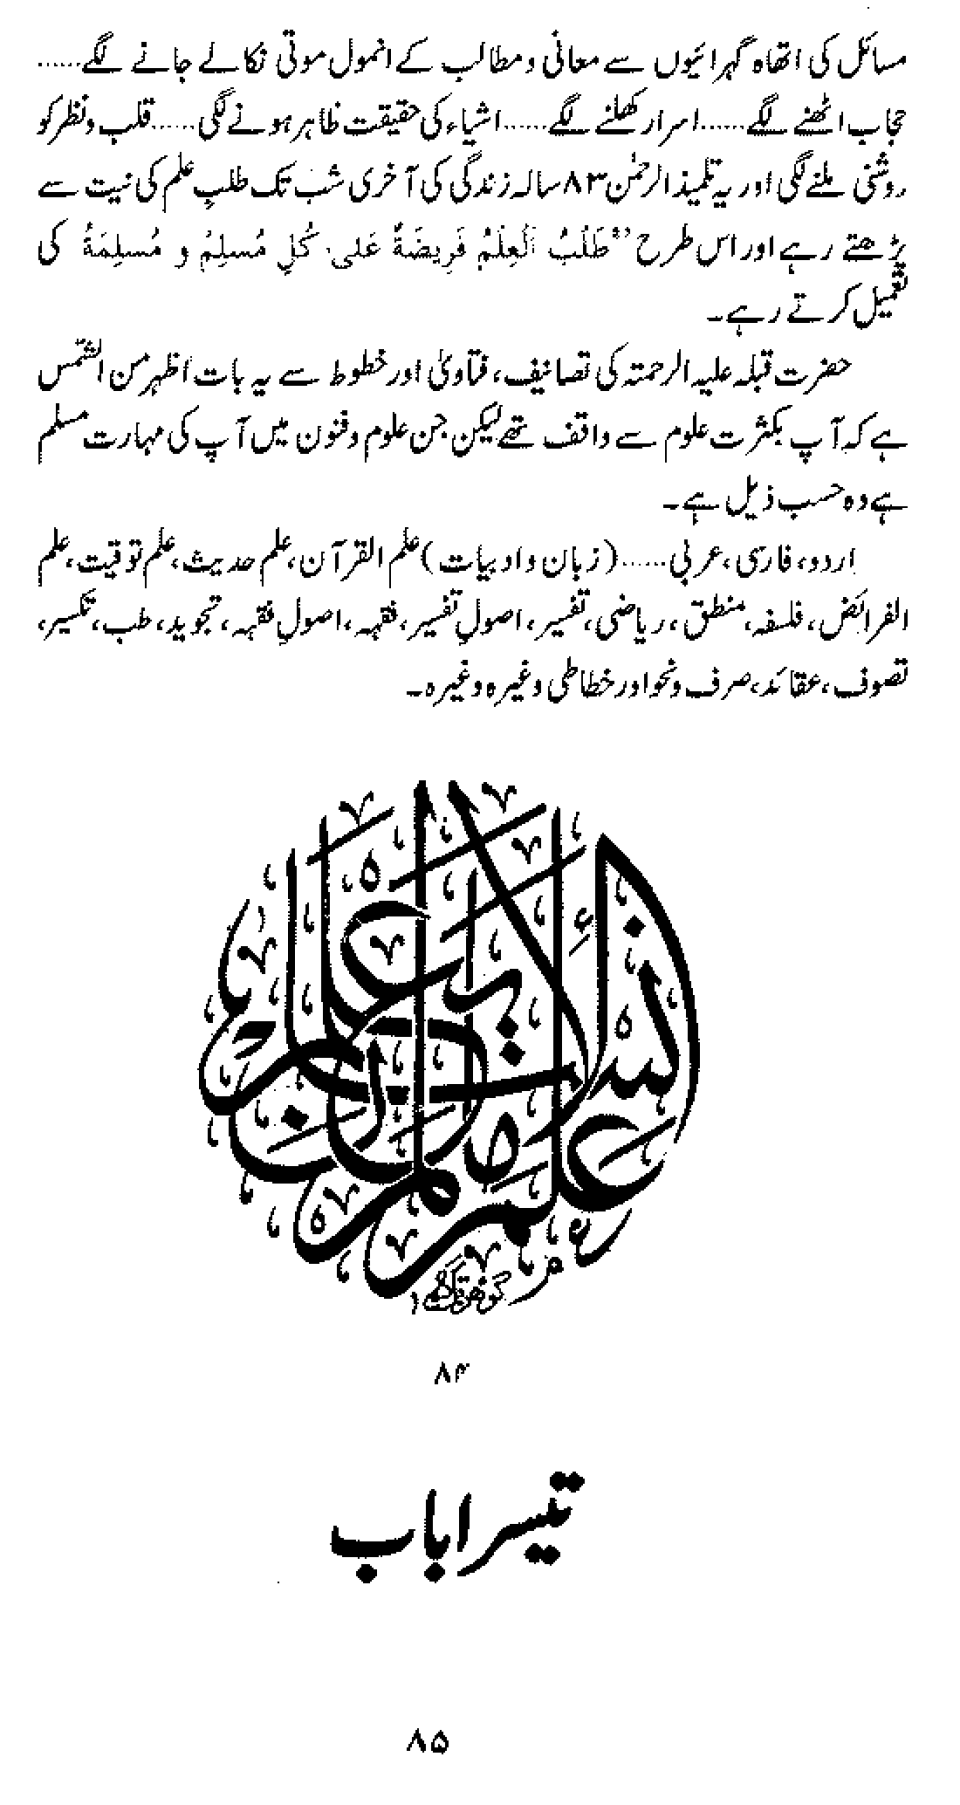 مسائل کی اتھاہ گہرائیوں سے معانی و مطالب کے انمول موتی نکالے جانے لگے......
حجاب اٹھنے لگے......اسرار کھلنے لگے......اشیاء کی حقیقت ظاہر ہونے لگی......قلب و نظر کو
روشنی ملنے لگی اور یہ تلمیذ الرحمٰن ۸۳ سالہ زندگی کی آخری شب تک طلبِ علم کی نیت سے
پڑھتے رہے اور اس طرح ”طَلَبُ الْعِلْمُ فَرِيضَةٌ عَلى كُلِ مُسلِمُ و مُسلِمَةُ کی
تعمیل کرتے رہے۔
حضرت قبلہ علیہ الرحمتہ کی تصانیف، فتاویٰ اور خطوط سے یہ بات اظہر من الشمس
ہے کہ آپ بکثرت علوم سے واقف تھے لیکن جن علوم و فنون میں آپ کی مہارت مسلم
ہے وہ حسب ذیل ہے۔
اردو، فارسی، عربی......(زبان و ادبیات) علم القرآن، علم حدیث، علم توقیت، علم
الفرائض، فلسفہ، منطق، ریاضی، تفسیر، اصولِ تفسیر، فقہہ، اصولِ فقہہ، تجوید، طب، تکسیر،
تصوف، عقائد، صرف و نحو اور خطاطی وغیرہ وغیرہ۔
علم الانسان مالم يعلم
۸۴
تیسرا باب
۸۵